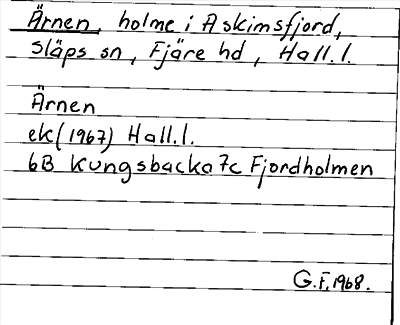 Ärnen, holme i Askimsfjord,
Släps sn, Fjäre hd, Hall.l.
Ärnen
ek (1967) Hall.l.
6B Kungsbacka 7c Fjordholmen
G.F. 1968.